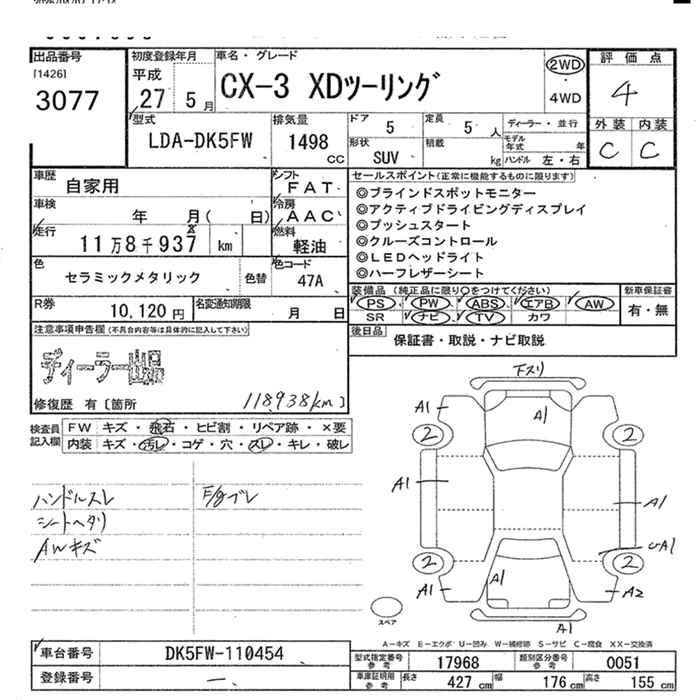 出品番号 [1426] 3077
初度登録年月 平成 27 5 月
車名・グレード CX-3 XDツーリング
2WD ・ 4WD
評価点 4
外装 内装
C C
型式 LDA-DK5FW
排気量 1498 cc
ドア 5 定員 5 人
形状 SUV 積載 kg
ディーラー・並行
モデル年式 年
ハンドル 左・右
車歴 自家用
シフト FAT
車検 年 月( 日)
冷房 AAC
走行 11万8千937 km
燃料 軽油
色 セラミックメタリック 色替
色コード 47A
R券 10,120円
名変通知期限 月 日
セールスポイント(正常に機能するものに限ります)
◎ブラインドスポットモニター
◎アクティブドライビングディスプレイ
◎プッシュスタート
◎クルーズコントロール
◎LEDヘッドライト
◎ハーフレザーシート
装備品(純正品に限り○をつけてください) 新車保証書
PS PW ABS エアB AW 有・無
SR ナビ TV カワ
後日品 保証書・取説・ナビ取説
注意事項申告欄(不具合内容等は具体的に記入して下さい)
ディーラー出品
修復歴 有 [箇所 118938(km) ]
検査員記入欄
FW キズ・飛石・ヒビ割・リペア跡・×要
内装 キズ・汚レ・コゲ・穴・スレ・キレ・破レ
ハンドルスレ F/gブレ
シートヘタリ
AWキズ
下スリ
A1 A1
2 2
A1 A1
UA1
2 2
A1 A1 A2
A1
スペア
A-キズ E-エクボ U-凹み W-補修跡 S-サビ C-腐食 XX-交換済
車台番号 DK5FW-110454
登録番号 —
型式指定番号 参考 17968 類別区分番号 参考 0051
車庫証明用 参考 長さ 427 cm 幅 176 cm 高さ 155 cm